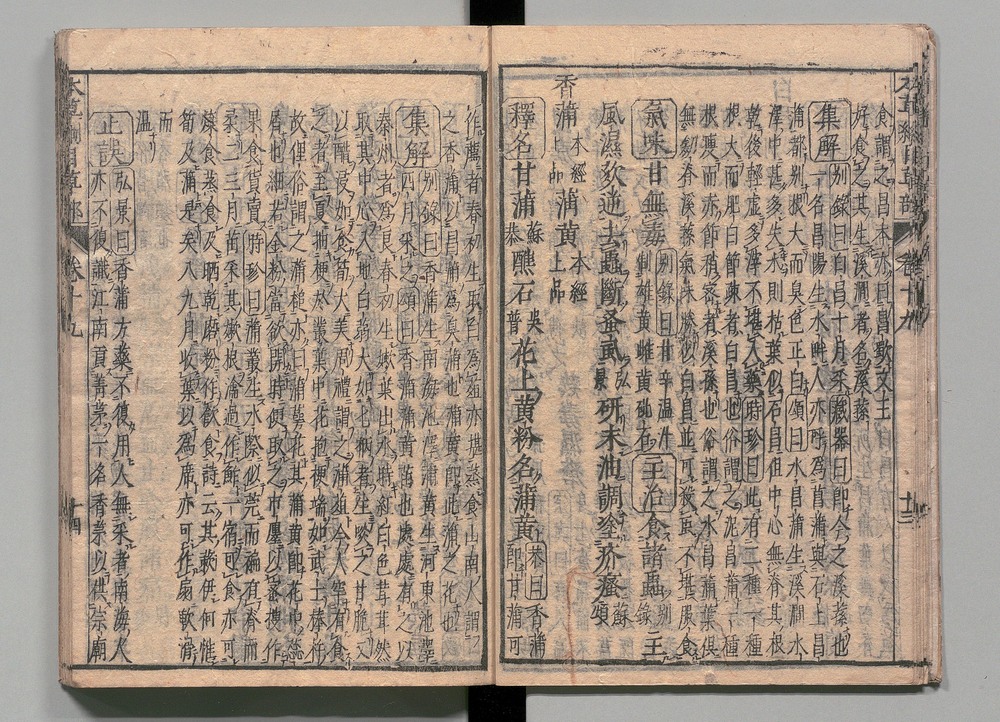 食謂之昌本亦曰昌歜文王
好食之其生溪澗者名溪蓀
集解別錄曰白昌十月采藏器曰即今之溪蓀也
一名昌陽生水畔人亦呼為昌蒲與石上昌
蒲都別根大而臭色正白頌曰水昌蒲生溪澗水
澤中甚多失水則枯葉似石昌但中心無脊其根
乾後輕虛多滓不堪入藥時珍曰此有二種一種
根大而肥白節疎者白昌也俗謂之泥昌蒲一種
根瘦而赤節稍密者溪蓀也俗謂之水昌蒲葉俱
無劒脊溪蓀氣味勝似白昌並可殺蟲不堪服食
氣味甘無毒別錄曰甘辛溫汁制雄黃雌黃砒石主治食諸蟲別錄主
風濕欬逆去蟲斷蚤蝨弘景研末油調塗疥瘙蘇頌
香蒲本經上品蒲黃本經上品
釋名甘蒲蘇恭醮石吳普花上黃粉名蒲黃恭曰香蒲即甘蒲可
作薦者春初生取白為菹亦堪蒸食山南人謂
之香蒲以昌蒲為臭蒲也蒲黃即此蒲之花也
集解別錄曰香蒲生南海池澤蒲黃生河東池澤
四月采之頌曰香蒲蒲黃苗也處處有之以
泰州者為良春初生嫩葉出水時紅白色茸茸然
取其中心入地白蒻大如匕柄者生啖之甘脆又
以醋浸如食筍大美周禮謂之蒲菹今人罕有食
之者至夏抽梗於叢葉中花抱梗端如武士棒杵
故俚俗謂之蒲槌亦曰蒲萼花其蒲黃即花中蕊
屑也細若金粉當欲開時便取之市廛以蜜搜作
果食貨賣時珍曰蒲叢生水際似莞而褊有脊而
柔二三月苗采其嫩根瀹過作鮓一宿可食亦可
煠食蒸食及晒乾磨粉作飲食詩云其蔌伊何惟
筍及蒲是矣八九月收葉以為席亦可作扇軟滑
而
溫
正誤弘景曰香蒲方藥不復用人無采者南海人
亦不復識江南貢菁茅一名香茅以供宗廟
本草綱目草部
卷十九
十四